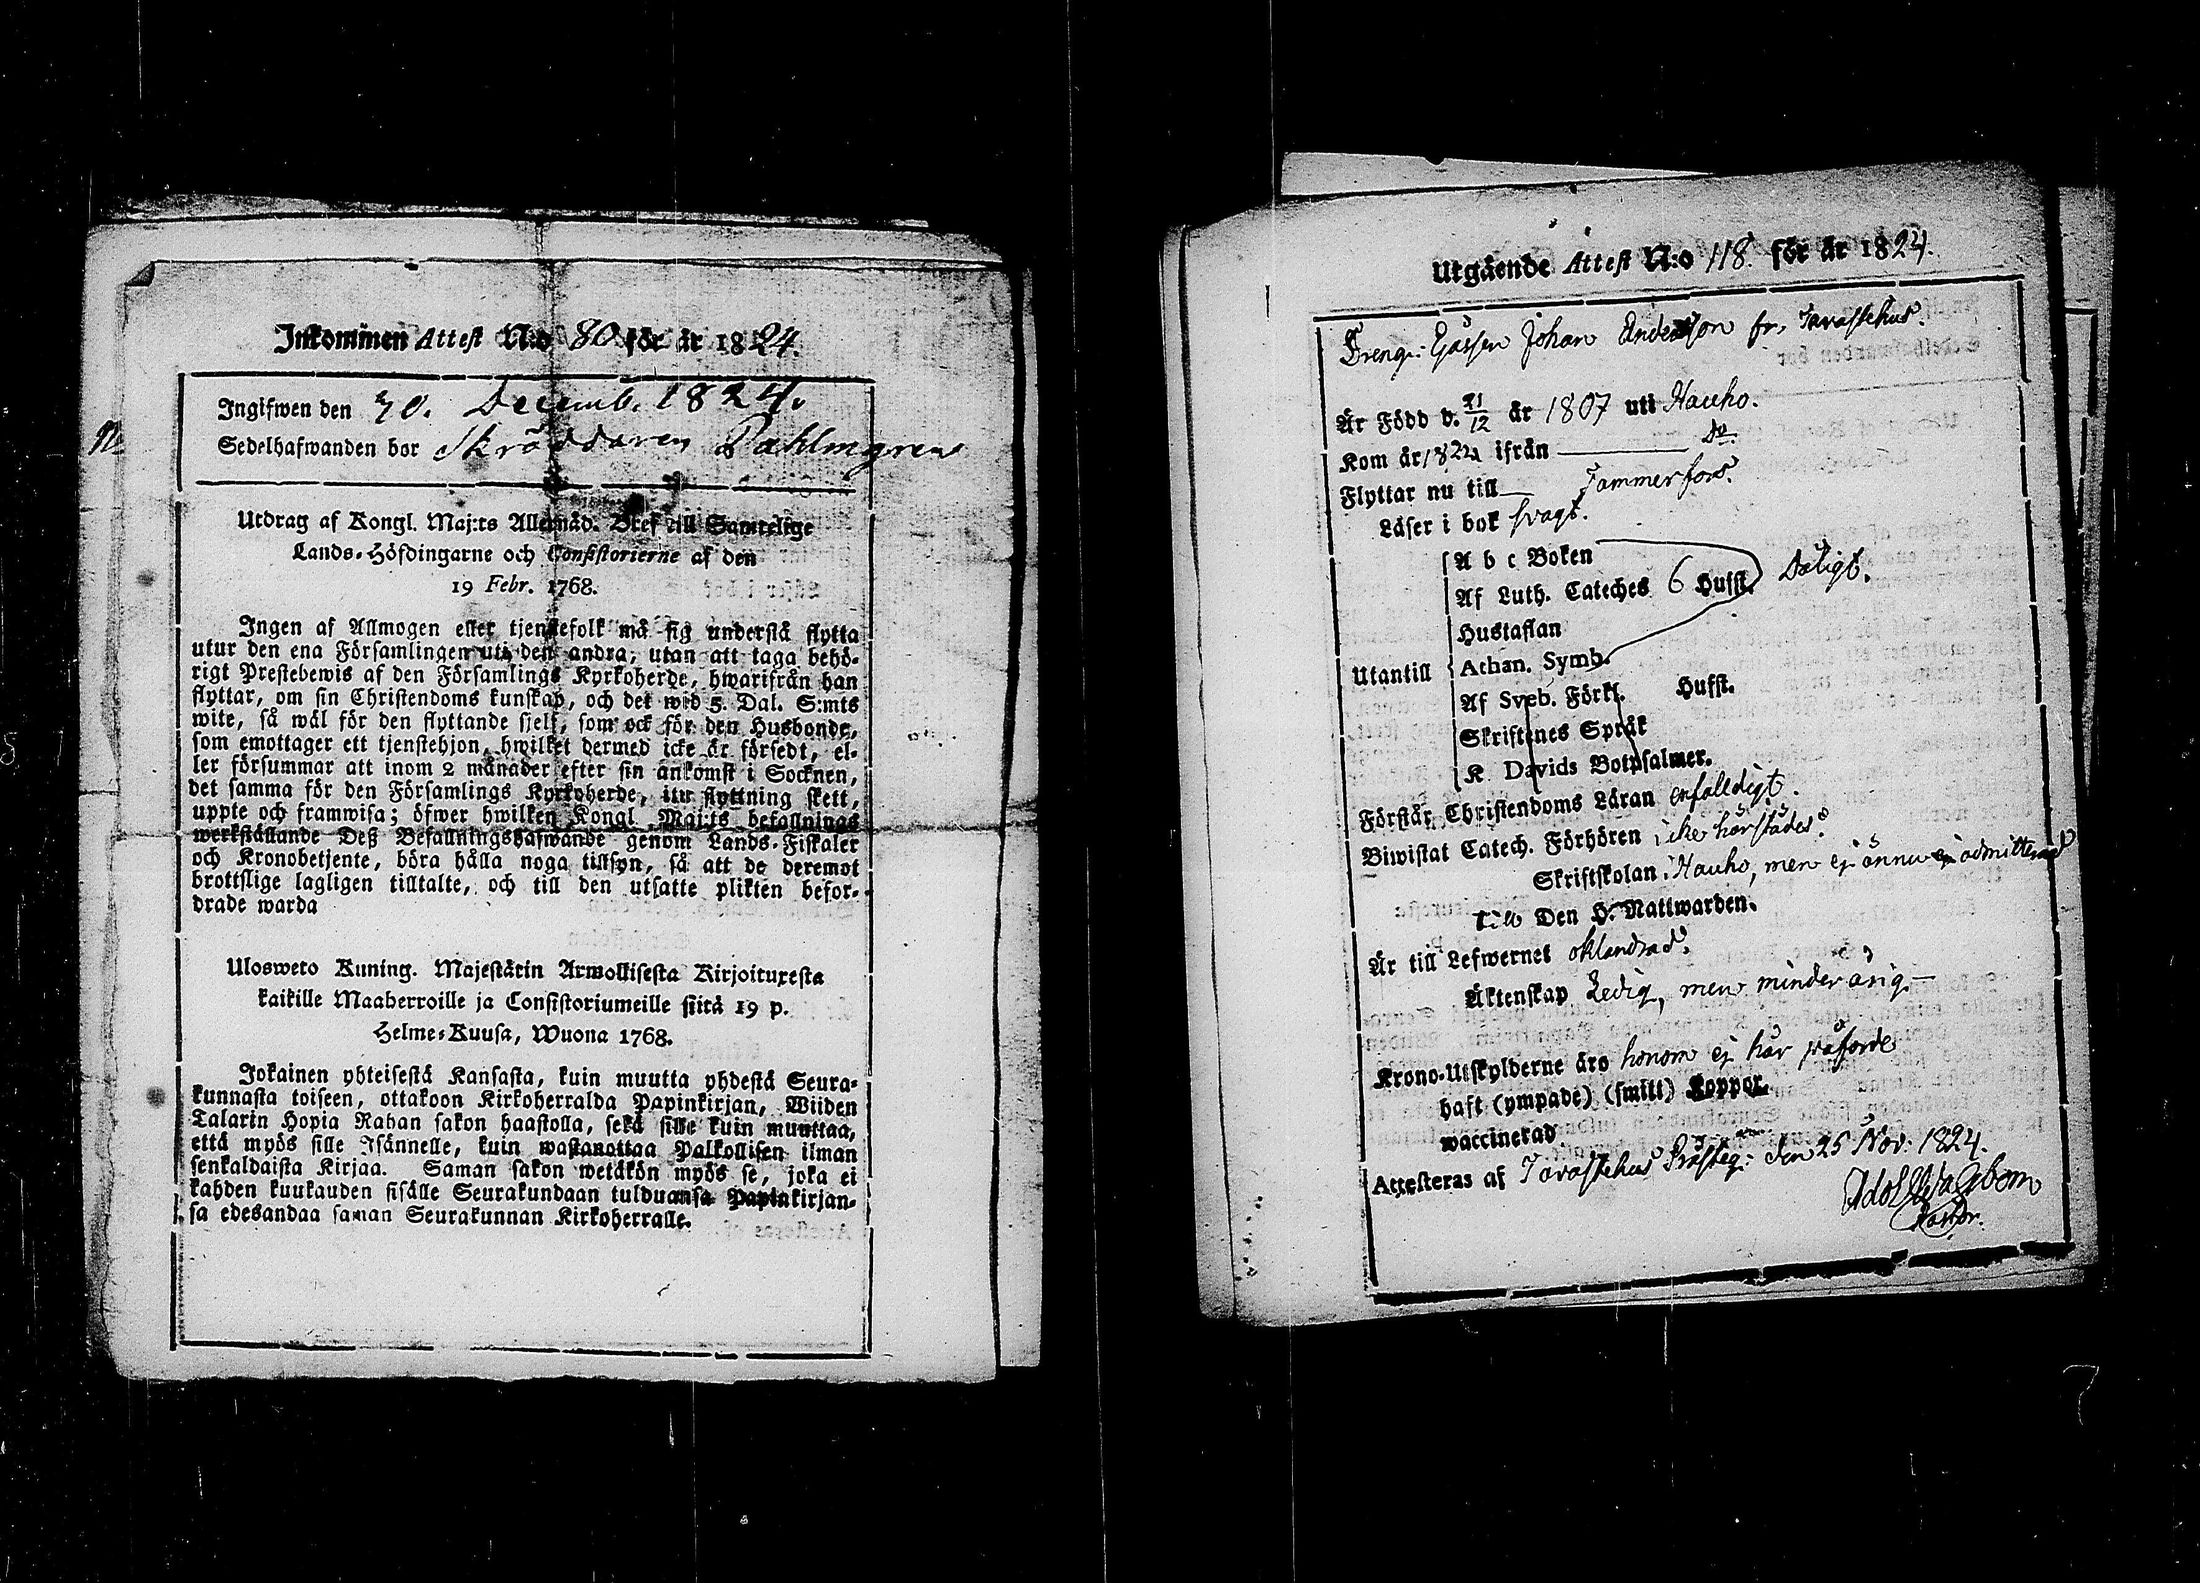 Inkommen Attest N:o 80 för år 1824.
Ingifwen den 30. Decemb. 1824.
Sedelhafwanden bor Skräddaren Dahlmgren
Utdrag af Kongl. Maj:ts Allernåd. Bref till Samtelige
Lands-Höfdingarne och Consistorierne af den
19 Febr. 1768.
Ingen af Allmogen eller tjenstefolk må sig understå flytta
utur den ena Församlingen uti den andra, utan att taga behö-
rigt Prestebewis af den Församlings Kyrkoherde, hwarifrån han
flyttar, om sin Christendoms kunskap, och det wid 5. Dal. S:mts
wite, så wäl för den flyttande sjelf, som ock för den Husbonde,
som emottager ett tjenstehjon, hwilket dermed icke är försedt, el-
ler försummar att inom 2 månader efter sin ankomst i Socknen,
det samma för den Församlings Kyrkoherde, itu flyttning skett,
uppte och framwisa; öfwer hwilken Kongl. Maj:ts befallnings
werkställande Deß Befallningshafwande genom Lands-Fiskaler
och Kronobetjente, böra hålla noga tillsyn, så att de deremot
brottslige lagligen tilltalte, och till den utsatte plikten befor-
drade warda
Ulosweto Kuning. Majestätin Armollisesta Kirjoituxesta
kaikille Maaherroille ja Consistoriumeille siitä 19 p.
Helme-Kuusa, Wuona 1768.
Jokainen yhteisestä Kansasta, kuin muutta yhdestä Seura-
kunnasta toiseen, ottakoon Kirkoherralda Papinkirjan, Wiiden
Talarin Hopia Rahan sakon haastolla, sekä sille kuin muuttaa,
että myös sille Isännelle, kuin wastanottaa Palkollisen ilman
senkaldaista Kirjaa. Saman sakon wetäkön myös se, joka ei
kahden kuukauden sisälle Seurakundaan tulduansa Papinkirjan-
sa edesandaa saman Seurakunnan Kirkoherralle.
Utgående Attest N:o 118. för år 1824.
Dreng: Gossen Johan Andersson fr. Tavastehus.
Är Född d. 21/12 år 1807 uti Hauho.
Kom år 1824 ifrån Do.
Flyttar nu till Tammerfors.
Läser i bok svagt.
A b c Boken
Af Luth. Cateches 6 Hufst. Dåligt.
Hustaflan
Utantill Athan. Symb.
Af Sveb. Förkl. Hufst.
Skriftenes Språk
K. Davids Botpsalmer.
Förstår Christendoms Läran enfalldigt.
Biwistat Catech. Förhören icke härstädes.
Skriftskolan i Hauho, men ej ännu admitterad
till Den H. Nattwarden.
Är till Lefwernet oklandrad.
Äktenskap Ledig, men minderårig.
Krono-Utskylderne äro honom ej här påförde
haft (ympade) (smitt) Koppor.
waccinerad
Attesteras af Tavastehus Prästeg: den 25 Nov: 1824.
Adolf Walbom
Pastor.